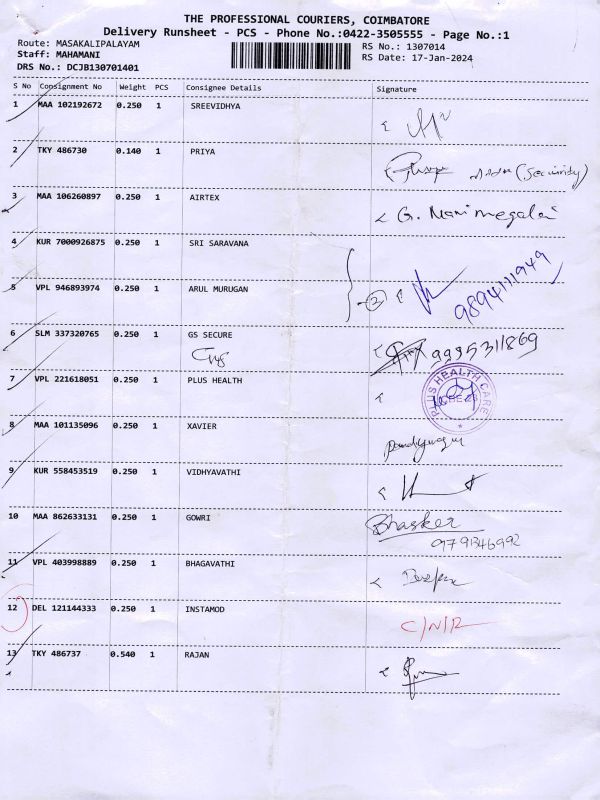 THE PROFESSIONAL COURIERS, COIMBATORE
Delivery Runsheet - PCS - Phone No.:0422-3505555 - Page No.:1
Route: MASAKALIPALAYAM
Staff: MAHAMANI
DRS No.: DCJB130701401
RS No.: 1307014
RS Date: 17-Jan-2024
S No Consignment No Weight PCS Consignee Details Signature
1 MAA 102192672 0.250 1 SREEVIDHYA
2 TKY 486730 0.140 1 PRIYA (Security)
3 MAA 106260897 0.250 1 AIRTEX G. Manimegalai
4 KUR 7000926875 0.250 1 SRI SARAVANA
5 VPL 946893974 0.250 1 ARUL MURUGAN 2 9894111949
6 SLM 337320765 0.250 1 GS SECURE 9995311869
7 VPL 221618051 0.250 1 PLUS HEALTH PLUS HEALTH CARE
8 MAA 101135096 0.250 1 XAVIER
9 KUR 558453519 0.250 1 VIDHYAVATHI
10 MAA 862633131 0.250 1 GOWRI Bhasker
9791346992
11 VPL 403998889 0.250 1 BHAGAVATHI
12 DEL 121144333 0.250 1 INSTAMOD C/N/R
13 TKY 486737 0.540 1 RAJAN